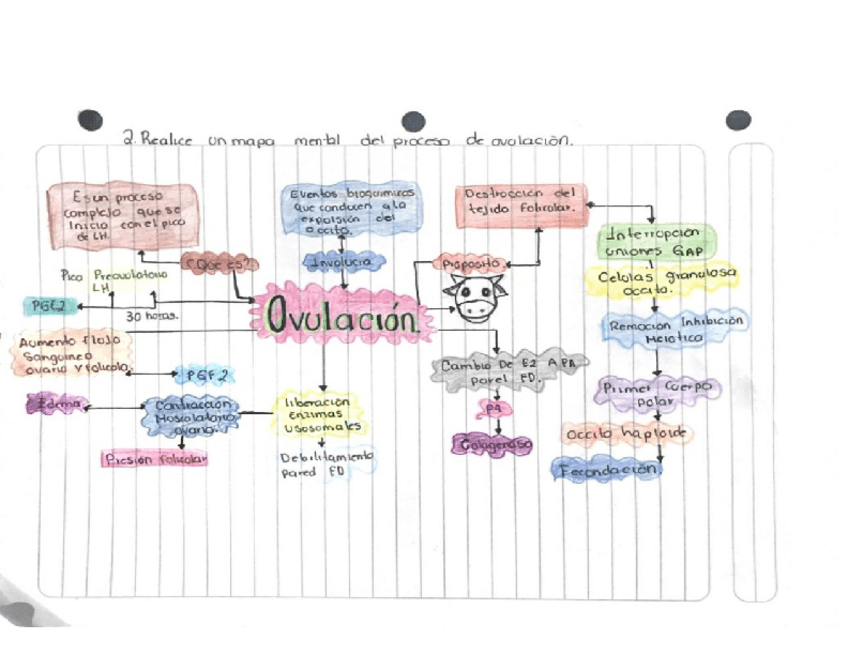 2. Realice un mapa mental del proceso de ovulación.
Es un proceso
complejo que se
inicia con el pico
de LH.
¿Que es?
Eventos bioquimicos
que conducen a la
expulsión del
occito.
Involucra
Destrucción del
tejido folicular.
Proposito
Interrupcion
uniones GAP
Celulas granulosa
occito.
Remoción Inhibición
Meiotica
Primer Cuerpo
polar
Occito haploide
Fecundación.
Pico Preovulatorio
LH
PGE2
30 horas.
Ovulación.
Aumento flujo
Sanguineo
ovario y folículo.
PGF2
Edema
Contracción
Musculatura
ovario.
Presión folicular
liberación
enzimas
lisosomales
Debilitamiento
Pared FD
Cambio De E2 A PA
pared FD.
PA
Colagenasa